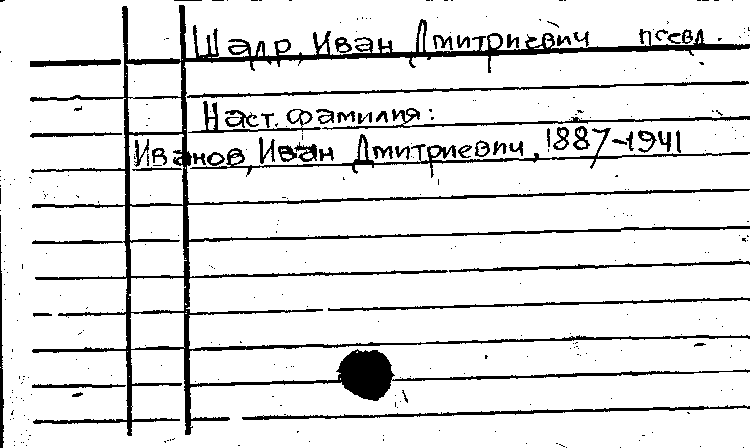 Шадр, Иван Дмитриевич псевд.
Наст. фамилия:
Иванов, Иван Дмитриевич, 1887-1941